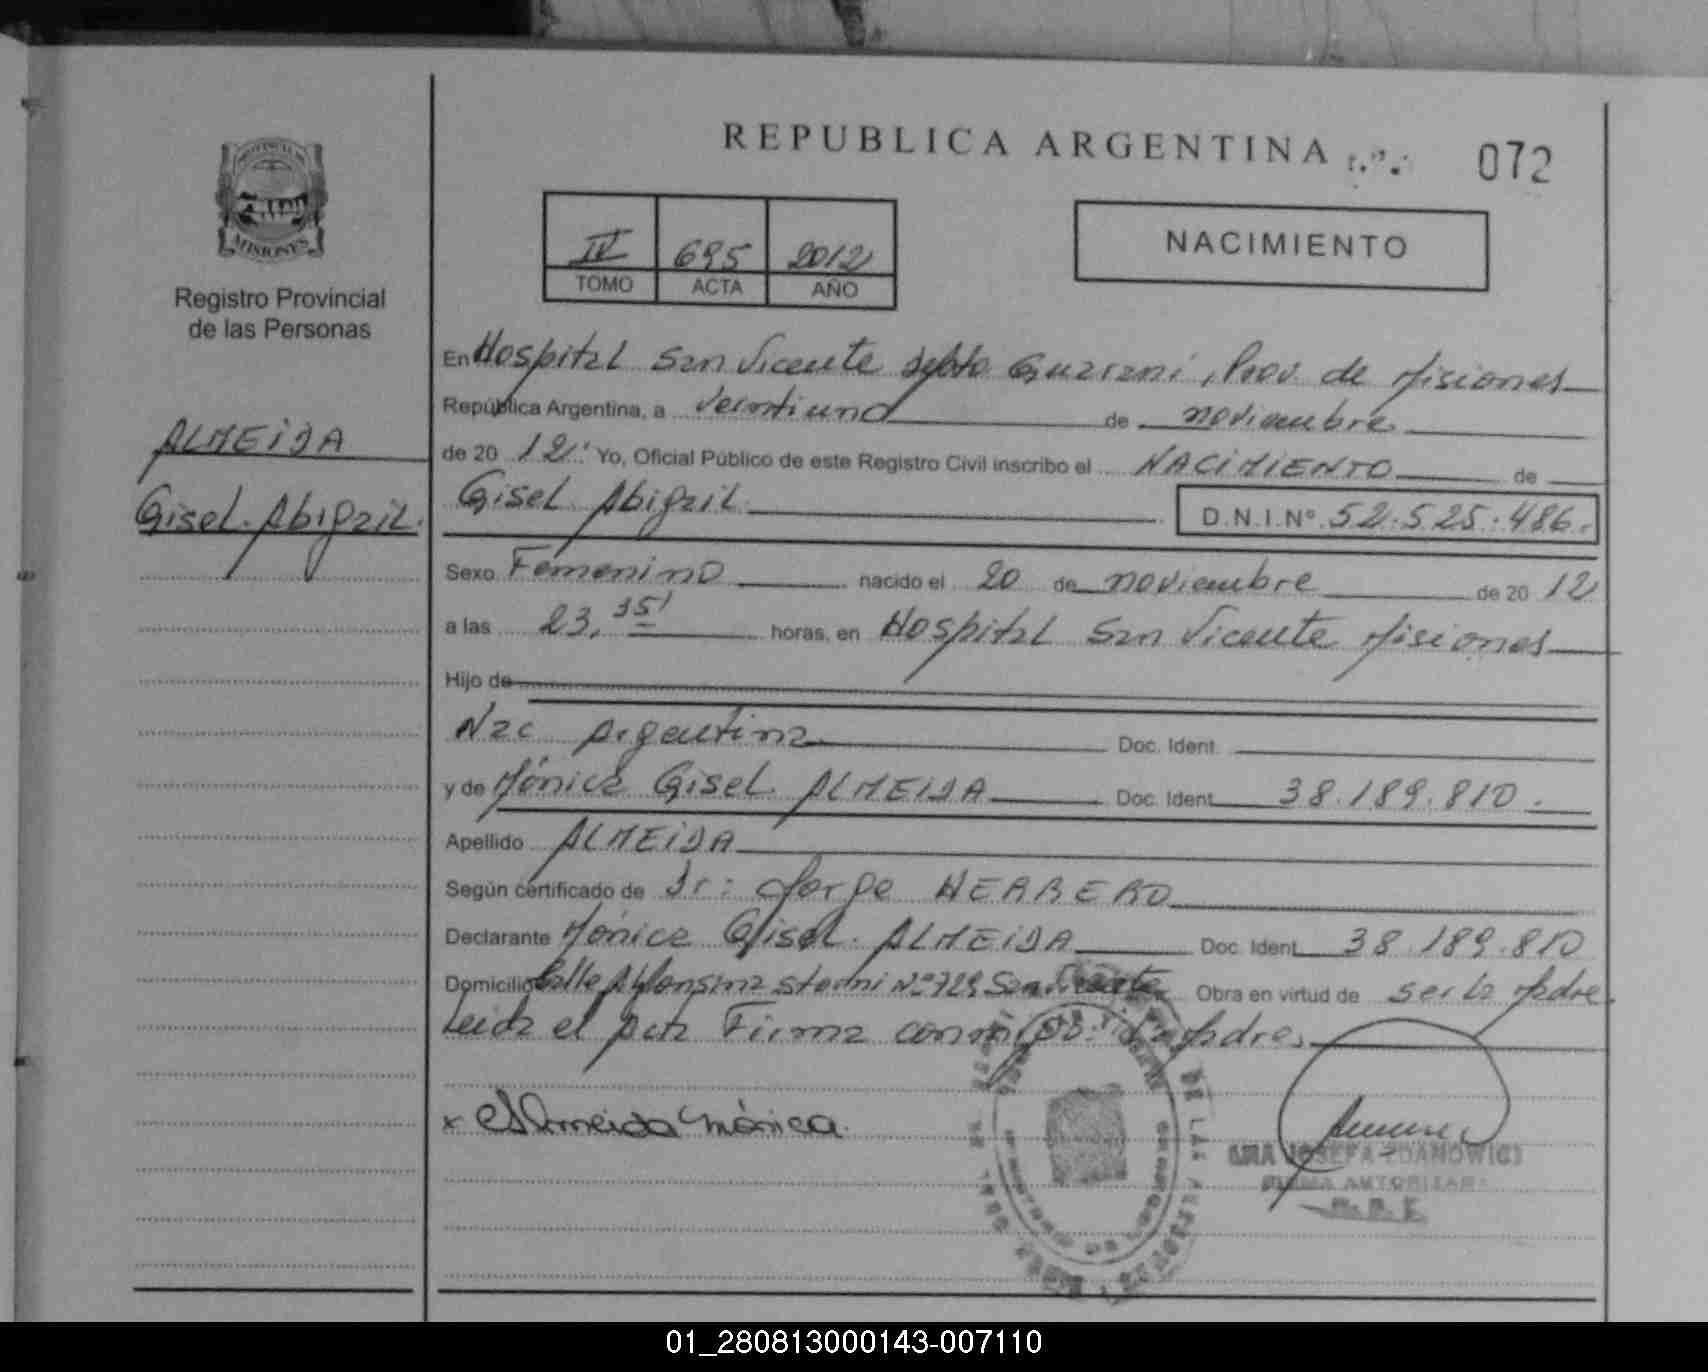 REPUBLICA ARGENTINA
072
PROVINCIA DE
MISIONES
Registro Provincial
de las Personas
IV 695 2012
TOMO ACTA AÑO
NACIMIENTO
ALMEIDA
Gisel Abigail.
En Hospital San Vicente Dpto Guarani, Prov. de Misiones
República Argentina, a veintiuno de noviembre
de 20 12 Yo, Oficial Público de este Registro Civil inscribo el NACIMIENTO de
Gisel Abigail D.N.I.Nº 52.525.486.
Sexo Femenino nacido el 20 de noviembre de 20 12
a las 23,35' horas, en Hospital San Vicente Misiones
Hijo de
Nac Argentina Doc. Ident.
y de Mónica Gisel ALMEIDA Doc. Ident. 38.189.810.
Apellido ALMEIDA
Según certificado de Dr: Jorge HERRERO
Declarante Mónica Gisel ALMEIDA Doc. Ident. 38.189.810
Domicilio Calle Alfonsina Storni Nº 729 San Vicente Obra en virtud de ser la Madre.
Leida el acta Firma conmigo: la Madre.
x Almeida Mónica.
ANA JOSEFA ZDANOWICZ
FIRMA AUTORIZADA
01_280813000143-007110